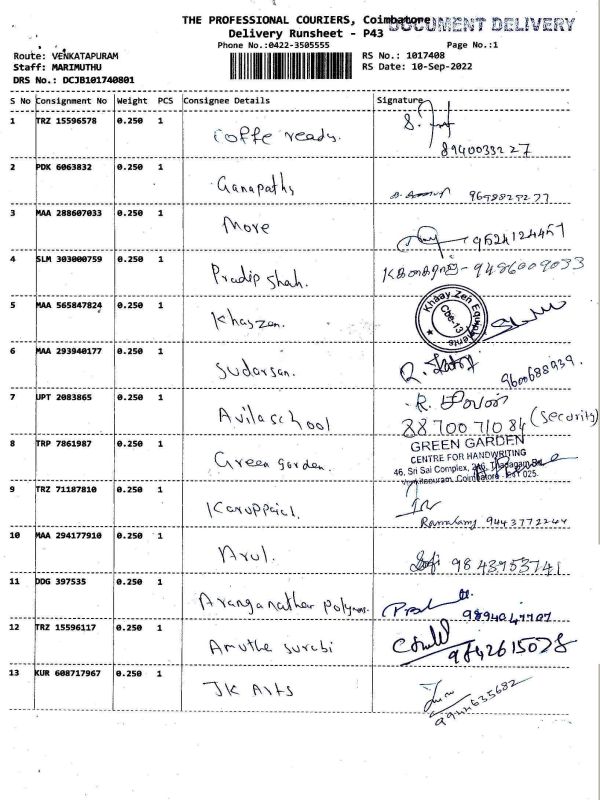 THE PROFESSIONAL COURIERS, Coimbatore
DOCUMENT DELIVERY
Delivery Runsheet - P43
Phone No.:0422-3505555 Page No.:1
Route: VENKATAPURAM RS No.: 1017408
Staff: MARIMUTHU RS Date: 10-Sep-2022
DRS No.: DCJB101740801
S No Consignment No Weight PCS Consignee Details Signature
1 TRZ 15596578 0.250 1 Coffe ready.
8940033227
2 PDK 6063832 0.250 1 Ganapathy
3 MAA 288607033 0.250 1 More 9524124457
4 SLM 303000759 0.250 1 Pradip shah. 9486009033
5 MAA 565847824 0.250 1 Khayzen.
Khaay Zen Equipments
Cbe-13
6 MAA 293940177 0.250 1 Sudarsan. 9600688939
7 UPT 2083865 0.250 1 Avila school
8870071084 (Security)
8 TRP 7861987 0.250 1 Green garden.
GREEN GARDEN
CENTRE FOR HANDWRITING
46, Sri Sai Complex, Thadagam
Coimbatore 641 025.
9 TRZ 71187810 0.250 1 Karuppaial.
9443772244
10 MAA 294177910 0.250 1 Arul. 9843953741
11 DDG 397535 0.250 1 Aranganathar polymers.
12 TRZ 15596117 0.250 1 Amuthe surabi 9842615078
13 KUR 608717967 0.250 1 JK Arts
9944635682